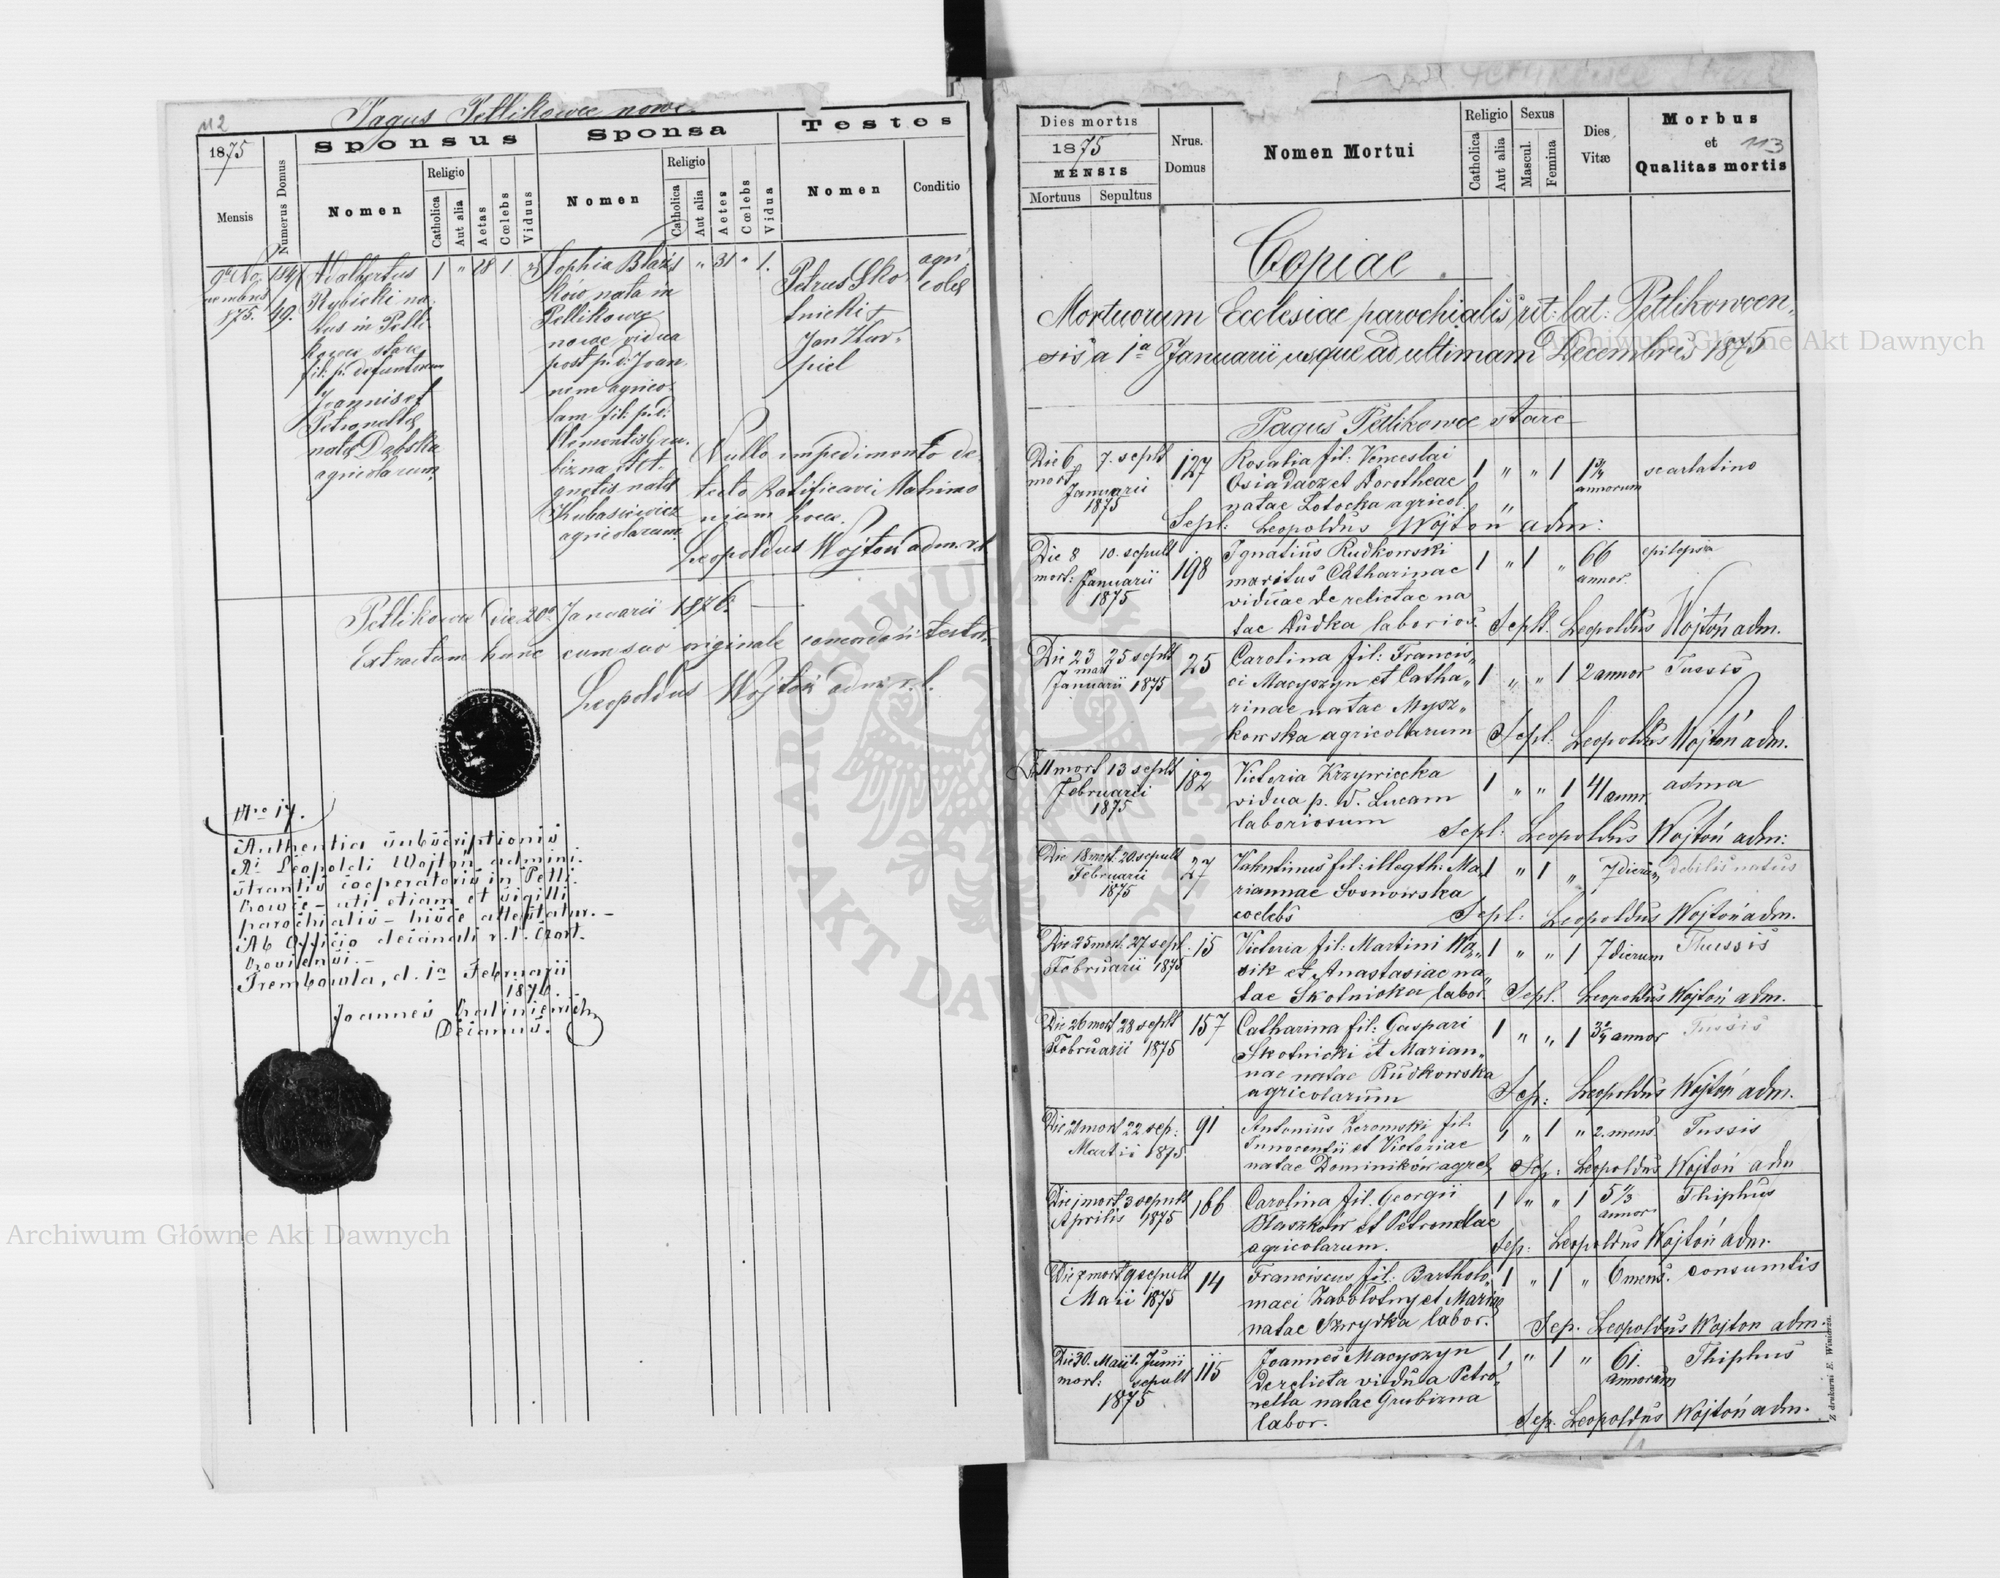 112
Pagus Petlikowce nowe
1875
Mensis
Numerus Domus
Sponsus
Nomen
Religio
Catholica
Aut alia
Aetas
Cœlebs
Viduus
Sponsa
Nomen
Religio
Catholica
Aut alia
Aetes
Cœlebs
Vidua
Testes
Nomen
Conditio
Adalbertus
Rybicki na-
tus in Petli-
kowce stare
fil: p. defunctorum
Joannis et
Petronellae
natae Dąbska
agricolarum
1 " 28 1
Sophia Błasz
ków nata in
Petlikowce
nowe vidua
post p. d. Joan
nem agrico-
lam fil: p. d.
Clementis Gru-
bizna et
natae
agricolarum
" 31 " 1.
Petrus Sko-
tnicki +
Jan Kur-
piel
agri-
colae
Nullo impedimento de-
tecto Ratificavi Matrimo
nium hocce.
Leopoldus Wojtoń adm. r. l.
Petlikowce die 20a Januarii 1876
Extractum hunc cum suo originale concordari testor
Leopoldus Wojtoń adm. r. l.
Nro 17.
Authentia subscriptionis
Ri Leopoldi Wojtoń admini-
strantis cooperatoris in Petli-
kowce - uti etiam et sigilli
parochialis - hisce attestatur. -
Ab Officio decanali r. l. Czort-
koviensi. -
Trembowla, d. 1a Februarii
1876.
Joannes Kaliniewicz
Decanus.
113
Dies mortis
1875
MENSIS
Mortuus
Sepultus
Nrus.
Domus
Nomen Mortui
Religio
Catholica
Aut alia
Sexus
Mascul.
Femina
Dies
Vitæ
Morbus
et
Qualitas mortis
Copiae
Mortuorum Ecclesiae parochialis rit: lat: Petlikowcen-
sis a 1a Januarii usque ad ultimam Decembris 1875
Pagus Petlikowce stare
Die 6 mort 7. sepult Januarii 1875
127
Rosalia fil: Venceslai
Osiadacz et Dorotheae
natae Łotocka agricol.
1 " " 1
annorum
scarlatino
Sepl: Leopoldus Wojtoń adm:
Die 8 mort: 10. sepult Januarii 1875
198
Ignatius Rudkowski
maritus Catharinae
viduae derelictae na
tae Dudka laborios.
1 " 1 "
66 annor.
epilepsia
Sepult. Leopoldus Wojtoń adm.
Die 23 mort 25 sepult Januarii 1875
25
Carolina fil: Francis-
ci Macyszyn et Catha-
rinae natae Mysz-
kowska agricolarum
1 " " 1 2 annor Tussis
Sepl: Leopoldus Wojtoń adm.
D. 11 mort 13 sepult Februarii 1875
182
Victoria Krzywiecka
vidua p. d. Lucam
laboriosum
1 " " 1 41 annor asma
Sepl: Leopoldus Wojtoń adm:
Die 18 mort: 20. sepult Februarii 1875
27
Valentinus fil: illegth: Ma-
riannae Sosnowska
coelebs
1 " 1 " 7 dierum debilis natus
Sepl: Leopoldus Wojtoń adm.
Die 25 mort. 27. sepl. Februarii 1875
15
Victoria fil: Martini Wa-
sik et Anastasiae na-
tae Skotnicka labor.
1 " " 1 7 dierum Thussis
Sepl. Leopoldus Wojtoń adm.
Die 26 mort 28 sepult Februarii 1875
157
Catharina fil: Gaspari
Skotnicki et Marian-
nae natae Rudkowska
agricolarum
1 " " 1 annor Tussis
Sep: Leopoldus Wojtoń adm.
Die 21 mort 22 sep: Martii 1875
91
Antonius Żeromski fil:
Innocentii et Victoriae
natae Dominików agrcl.
1 " 1 " 2. mens. Tussis
Sep: Leopoldus Wojtoń adm
Die 1 mort 3 sepult Aprilis 1875
166
Carolina fil. Georgii
Błaszków et Petronellae
agricolarum.
1 " " 1 5 1/3 annor. Thiphus
Sep: Leopoldus Wojtoń adm.
Die 7 mort 9 sepult Maii 1875
14
Franciscus fil: Bartholo-
maei Zabołotny et Mariae
natae Szwydka labor.
1 " 1 " 6 mens. consumtis
Sep. Leopoldus Wojtoń adm.
Die 30. Maii mort: 1. Junii sepult 1875
115
Joannes Macyszyn
derelicta vidua Petro-
nella natae Grubizna
labor.
1 " 1 " 61. annorum Thiphus
Sep. Leopoldus Wojtoń adm.
Z drukarni E. Winiarza.
Archiwum Główne Akt Dawnych
Archiwum Główne Akt Dawnych
ARCHIWUM GŁÓWNE AKT DAWNYCH